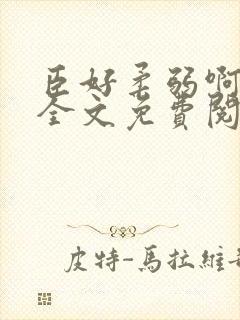 臣好柔弱啊
全文免費閱
皮特-馬拉維